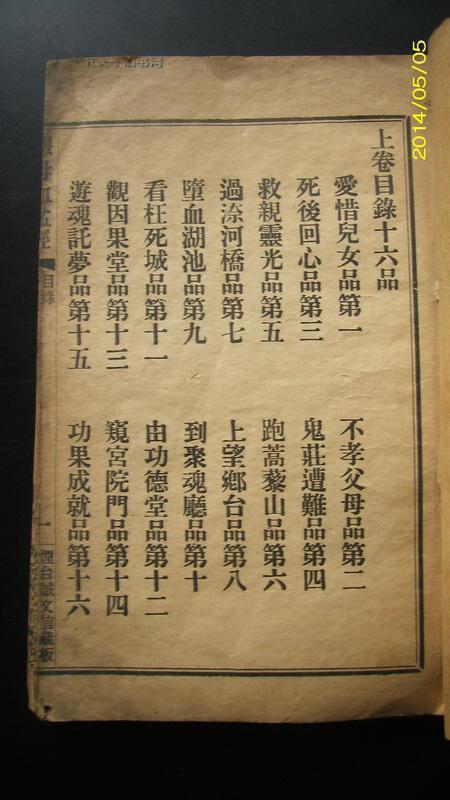 上卷目錄十六品
愛惜兒女品第一
不孝父母品第二
死後回心品第三
鬼莊遭難品第四
救親靈光品第五
跑蒿藜山品第六
過奈河橋品第七
上望鄉台品第八
墮血湖池品第九
到聚魂廳品第十
看枉死城品第十一
由功德堂品第十二
觀因果堂品第十三
窺宮院門品第十四
遊魂託夢品第十五
功果成就品第十六
血盆經
目錄
一
煙台誠文信藏板
2014/05/05